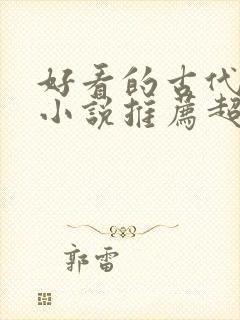 好看的古代
小说推荐超
郭雷